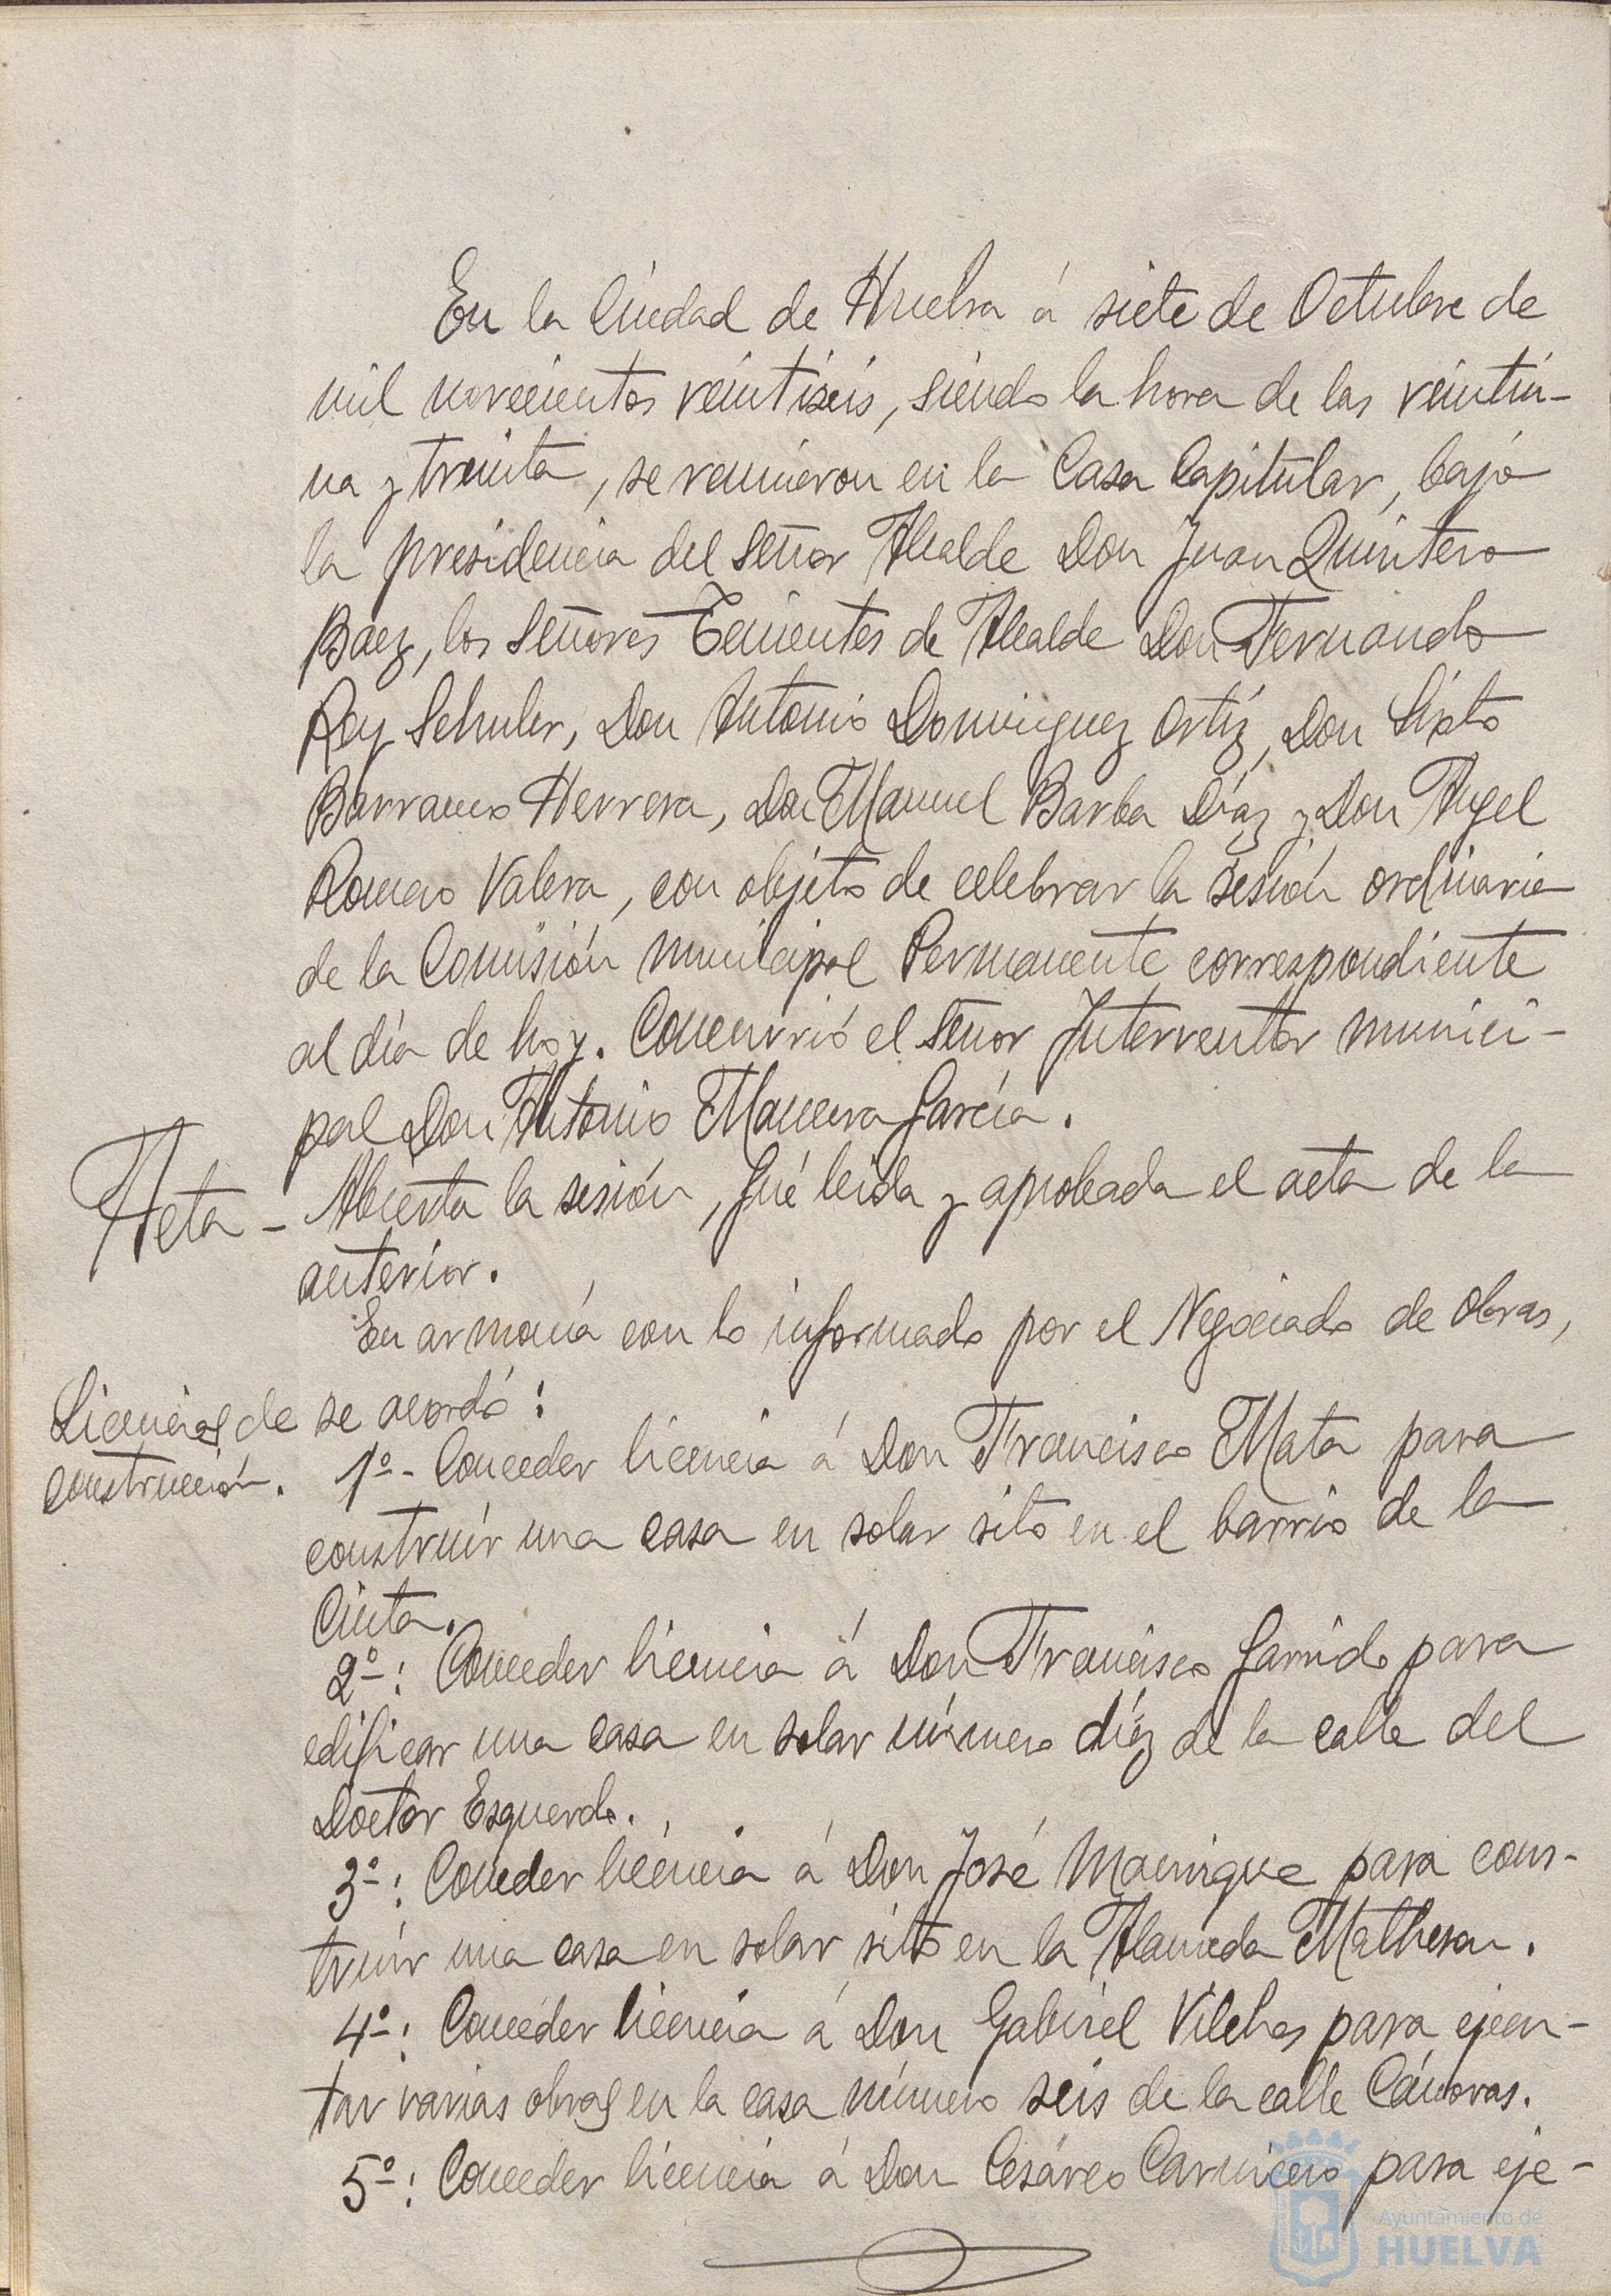 En la Ciudad de Huelva á siete de Octubre de
mil novecientos veintiseis, siendo la hora de las veintiu-
na y treinta, se reunieron en la Casa Capitular, bajo
la presidencia del Señor Alcalde Don Juan Quintero
Báez, los Señores Tenientes de Alcalde Don Fernando
Rey Schuler, Don Antonio Dominguez Ortíz, Don Sixto
Barranco Herrera, Don Manuel Barba Díaz y Don Angel
Romero Valera, con objeto de celebrar la sesión ordinaria
de la Comisión municipal Permanente correspondiente
al día de hoy. Concurrió el Señor Interventor munici-
pal Don Antonio Mancera García.
Acta - Abierta la sesión, fué leida y aprobada el acta de la
anterior.
En armonía con lo informado por el Negociado de Obras,
Licencias de se acordó:
construcción. 1º- Conceder licencia á Don Francisco Mata para
construír una casa en solar sito en el barrio de la
Cinta.
2º: Conceder licencia á Don Francisco Garrido para
edificar una casa en solar número díez de la calle del
Doctor Esquerdo.
3º: Conceder licencia á Don José Manrique para cons-
truír una casa en solar sito en la Alameda Matheson.
4º: Conceder licencia á Don Gabriel Vilches para ejecu-
tar varias obras en la casa número seis de la calle Cánovas.
5º: Conceder licencia á Don Cesáreo Carnicero para eje-
Ayuntamiento de
HUELVA